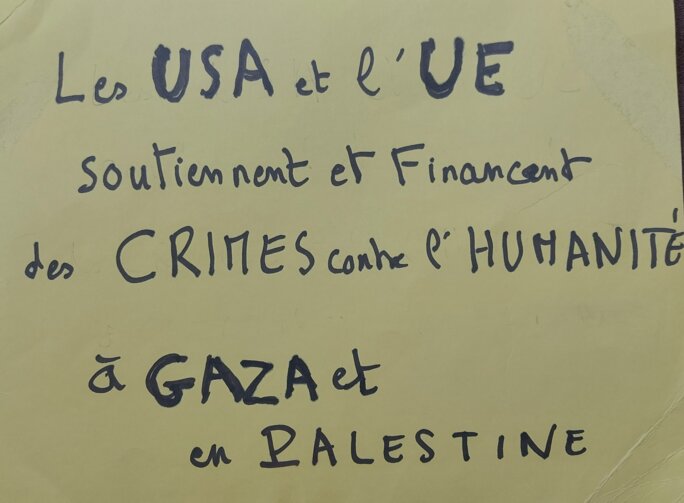 Les USA et l'UE
soutiennent et Financent
des CRIMES contre l'HUMANITÉ
à GAZA et
en PALESTINE